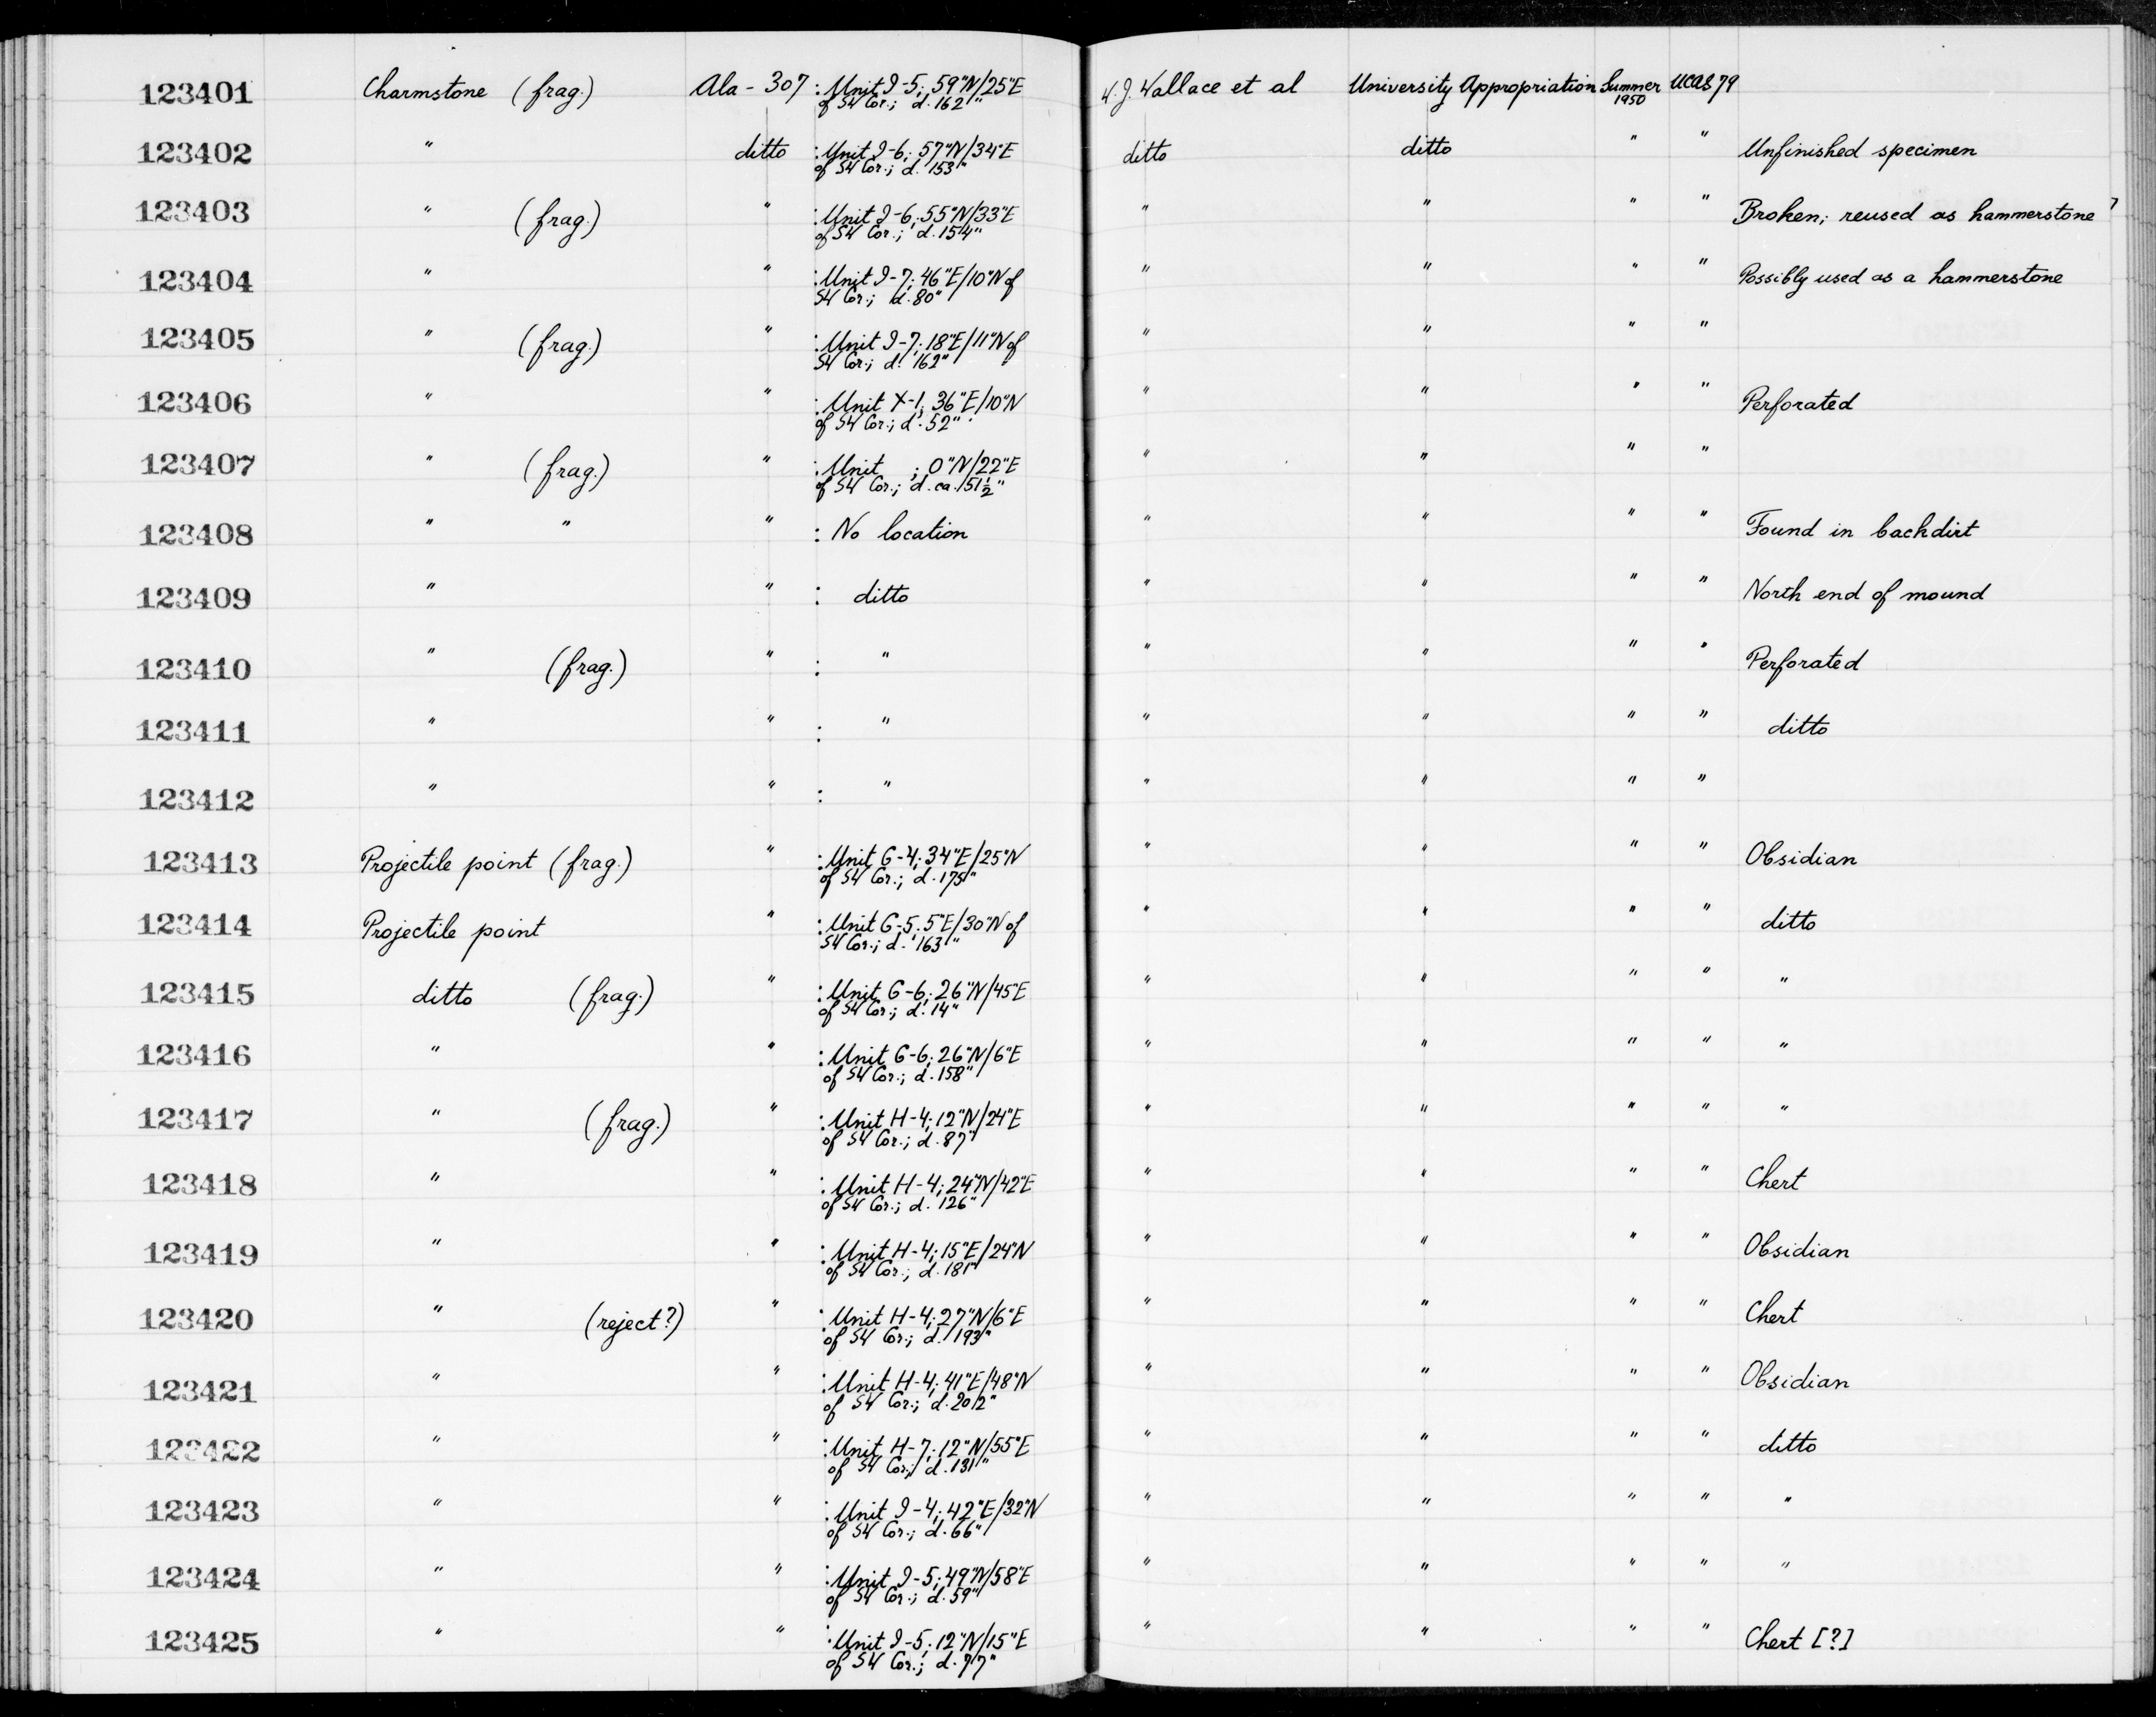 123401 Charmstone (frag.) Ala - 307 : Unit I-5; 59"N/25"E W.J. Wallace et al University Appropriation Summer 1950 UCAS 79
of SW Cor.; d. 162"
123402 " ditto : Unit I-6; 57"N/34"E ditto ditto " " Unfinished specimen
of SW Cor.; d. 153"
123403 " (frag.) " : Unit I-6; 55"N/33"E " " " " Broken; reused as hammerstone
of SW Cor.; d. 154"
123404 " " : Unit I-7; 46"E/10"N of " " " " Possibly used as a hammerstone
SW Cor.; d. 80"
123405 " (frag.) " : Unit I-7; 18"E/11"N of " " " "
SW Cor.; d. 162"
123406 " " : Unit X-1; 36"E/10"N " " " " Perforated
of SW Cor.; d. 52"
123407 " (frag.) " : Unit ; 0"N/22"E " " " "
of SW Cor.; d. ca. 151½"
123408 " " " : No location " " " " Found in backdirt
123409 " " : ditto " " " " North end of mound
123410 " (frag.) " : " " " " " Perforated
123411 " " : " " " " " ditto
123412 " " : " " " " "
123413 Projectile point (frag.) " : Unit G-4; 34"E/25"N " " " " Obsidian
of SW Cor.; d. 175"
123414 Projectile point " : Unit G-5; 5"E/30"N of " " " " ditto
SW Cor.; d. 163"
123415 ditto (frag.) " : Unit G-6; 26"N/45"E " " " " "
of SW Cor.; d. 14"
123416 " " : Unit G-6; 26"N/6"E " " " " "
of SW Cor.; d. 158"
123417 " (frag.) " : Unit H-4; 12"N/24"E " " " " "
of SW Cor.; d. 87"
123418 " " : Unit H-4; 24"N/42"E " " " " Chert
of SW Cor.; d. 126"
123419 " " : Unit H-4; 15"E/24"N " " " " Obsidian
of SW Cor.; d. 181"
123420 " (reject?) " : Unit H-4; 27"N/6"E " " " " Chert
of SW Cor.; d. 193"
123421 " " : Unit H-4; 41"E/48"N " " " " Obsidian
of SW Cor.; d. 202"
123422 " " : Unit H-7; 12"N/55"E " " " " ditto
of SW Cor.; d. 131"
123423 " " : Unit I-4; 42"E/32"N " " " " "
of SW Cor.; d. 66"
123424 " " : Unit I-5; 49"N/58"E " " " " "
of SW Cor.; d. 59"
123425 " " : Unit I-5; 12"N/15"E " " " " Chert [?]
of SW Cor.; d. 77"